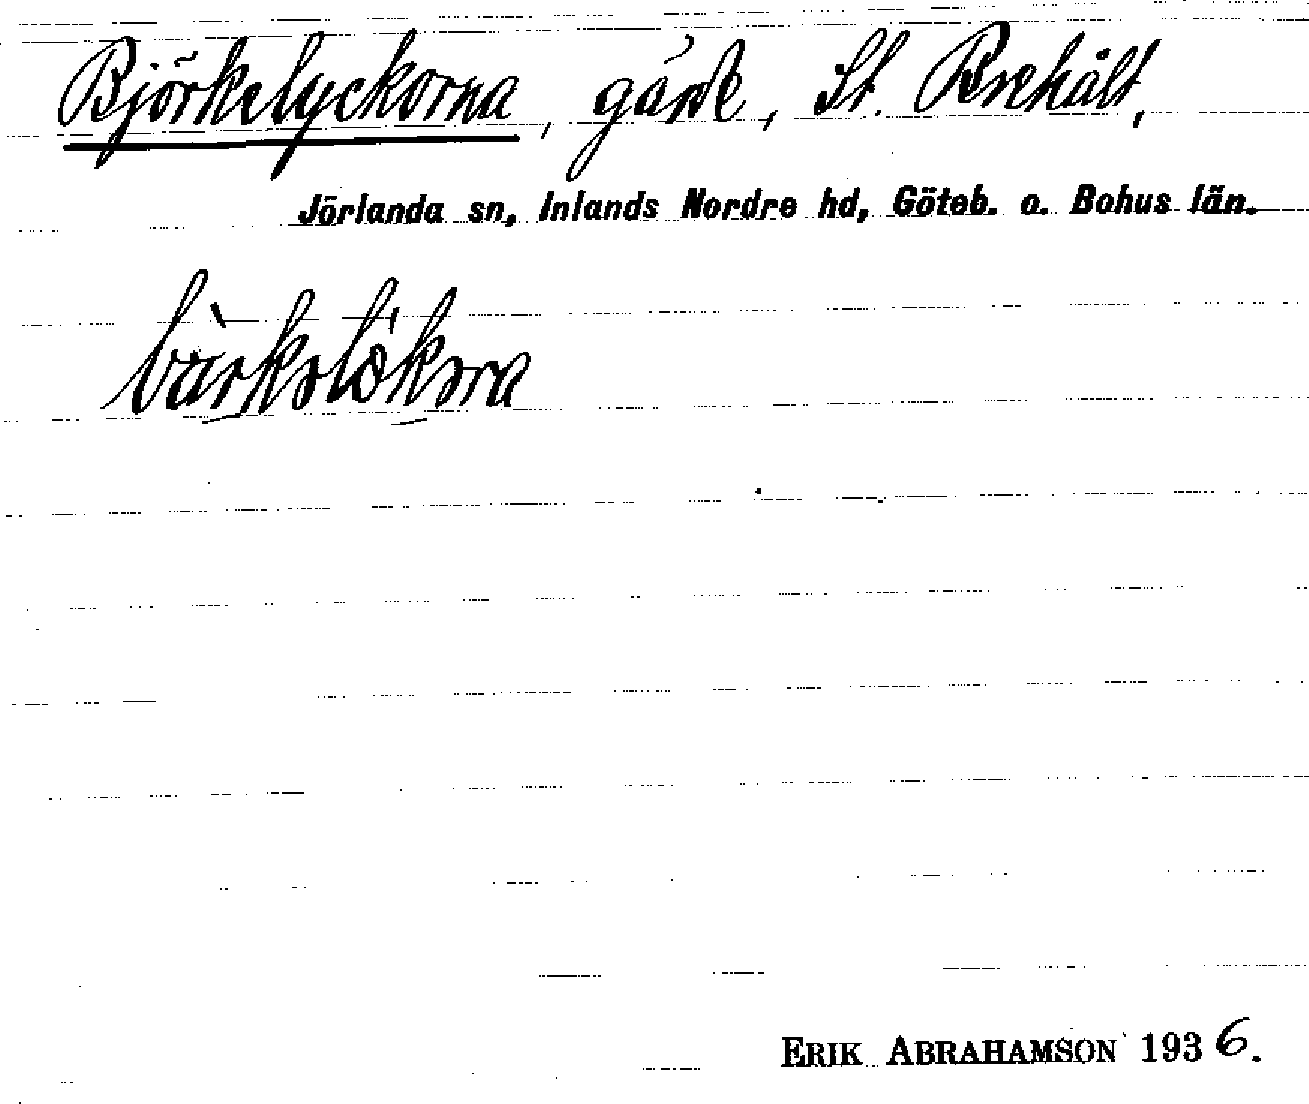 Björkelyckorna, gärde, St.
Jörlanda sn, Inlands Nordre hd, Göteb. o. Bohus län.
ERIK ABRAHAMSON 1936.